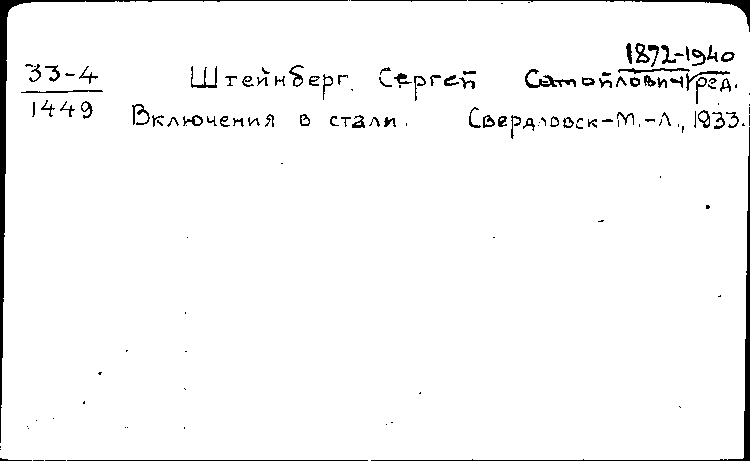 1872-1940
33-4 Штейнберг, Сергей Самойлович, ред.
1449 Включения в стали. Свердловск-М.-Л., 1933.